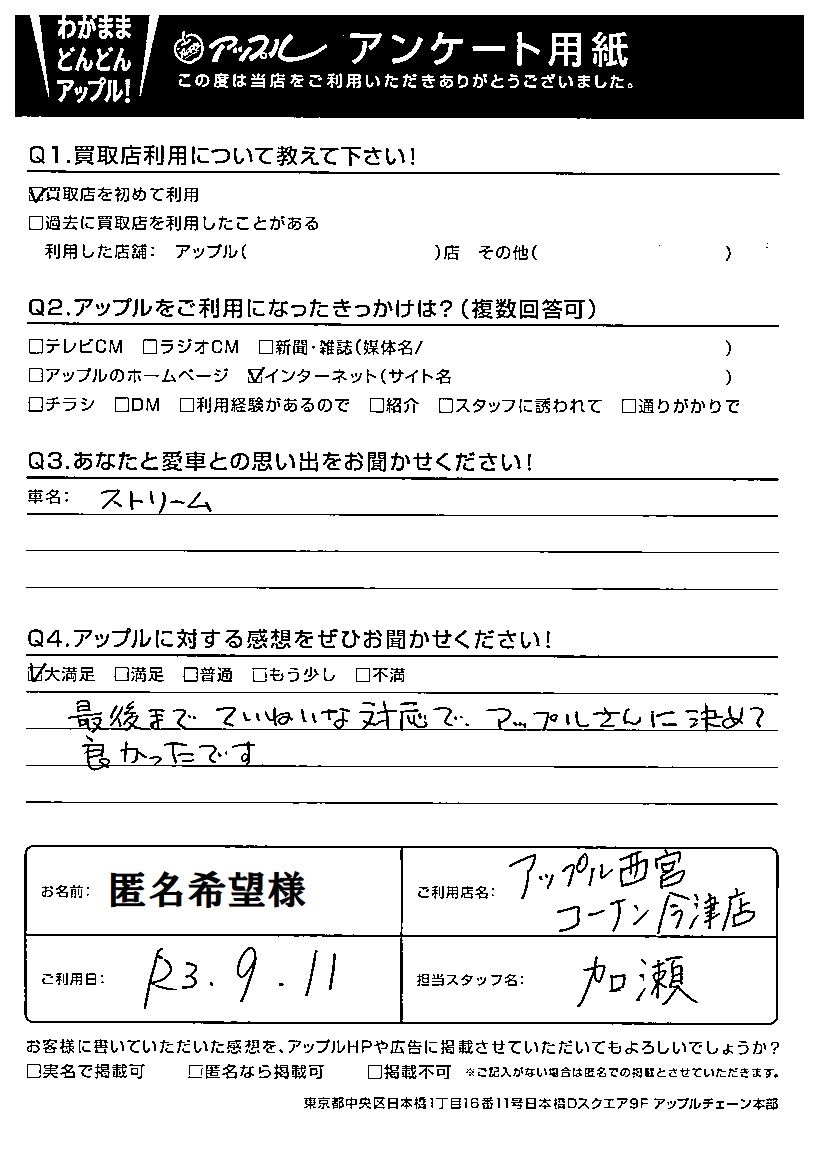 わがまま
どんどん
アップル!
アップル アンケート用紙
この度は当店をご利用いただきありがとうございました。
Q1.買取店利用について教えて下さい!
☑買取店を初めて利用
□過去に買取店を利用したことがある
利用した店舗: アップル( )店 その他( )
Q2.アップルをご利用になったきっかけは?(複数回答可)
□テレビCM □ラジオCM □新聞・雑誌(媒体名/ )
□アップルのホームページ ☑インターネット(サイト名 )
□チラシ □DM □利用経験があるので □紹介 □スタッフに誘われて □通りがかりで
Q3.あなたと愛車との思い出をお聞かせください!
車名: ストリーム
Q4.アップルに対する感想をぜひお聞かせください!
☑大満足 □満足 □普通 □もう少し □不満
最後まで ていねいな対応で、アップルさんに決めて
良かったです
お名前: 匿名希望様
ご利用店名: アップル西宮
コーナン今津店
ご利用日: R3.9.11
担当スタッフ名: 加瀬
お客様に書いていただいた感想を、アップルHPや広告に掲載させていただいてもよろしいでしょうか?
□実名で掲載可 □匿名なら掲載可 □掲載不可 ※ご記入がない場合は匿名での掲載とさせていただきます。
東京都中央区日本橋1丁目16番11号日本橋Dスクエア9F アップルチェーン本部